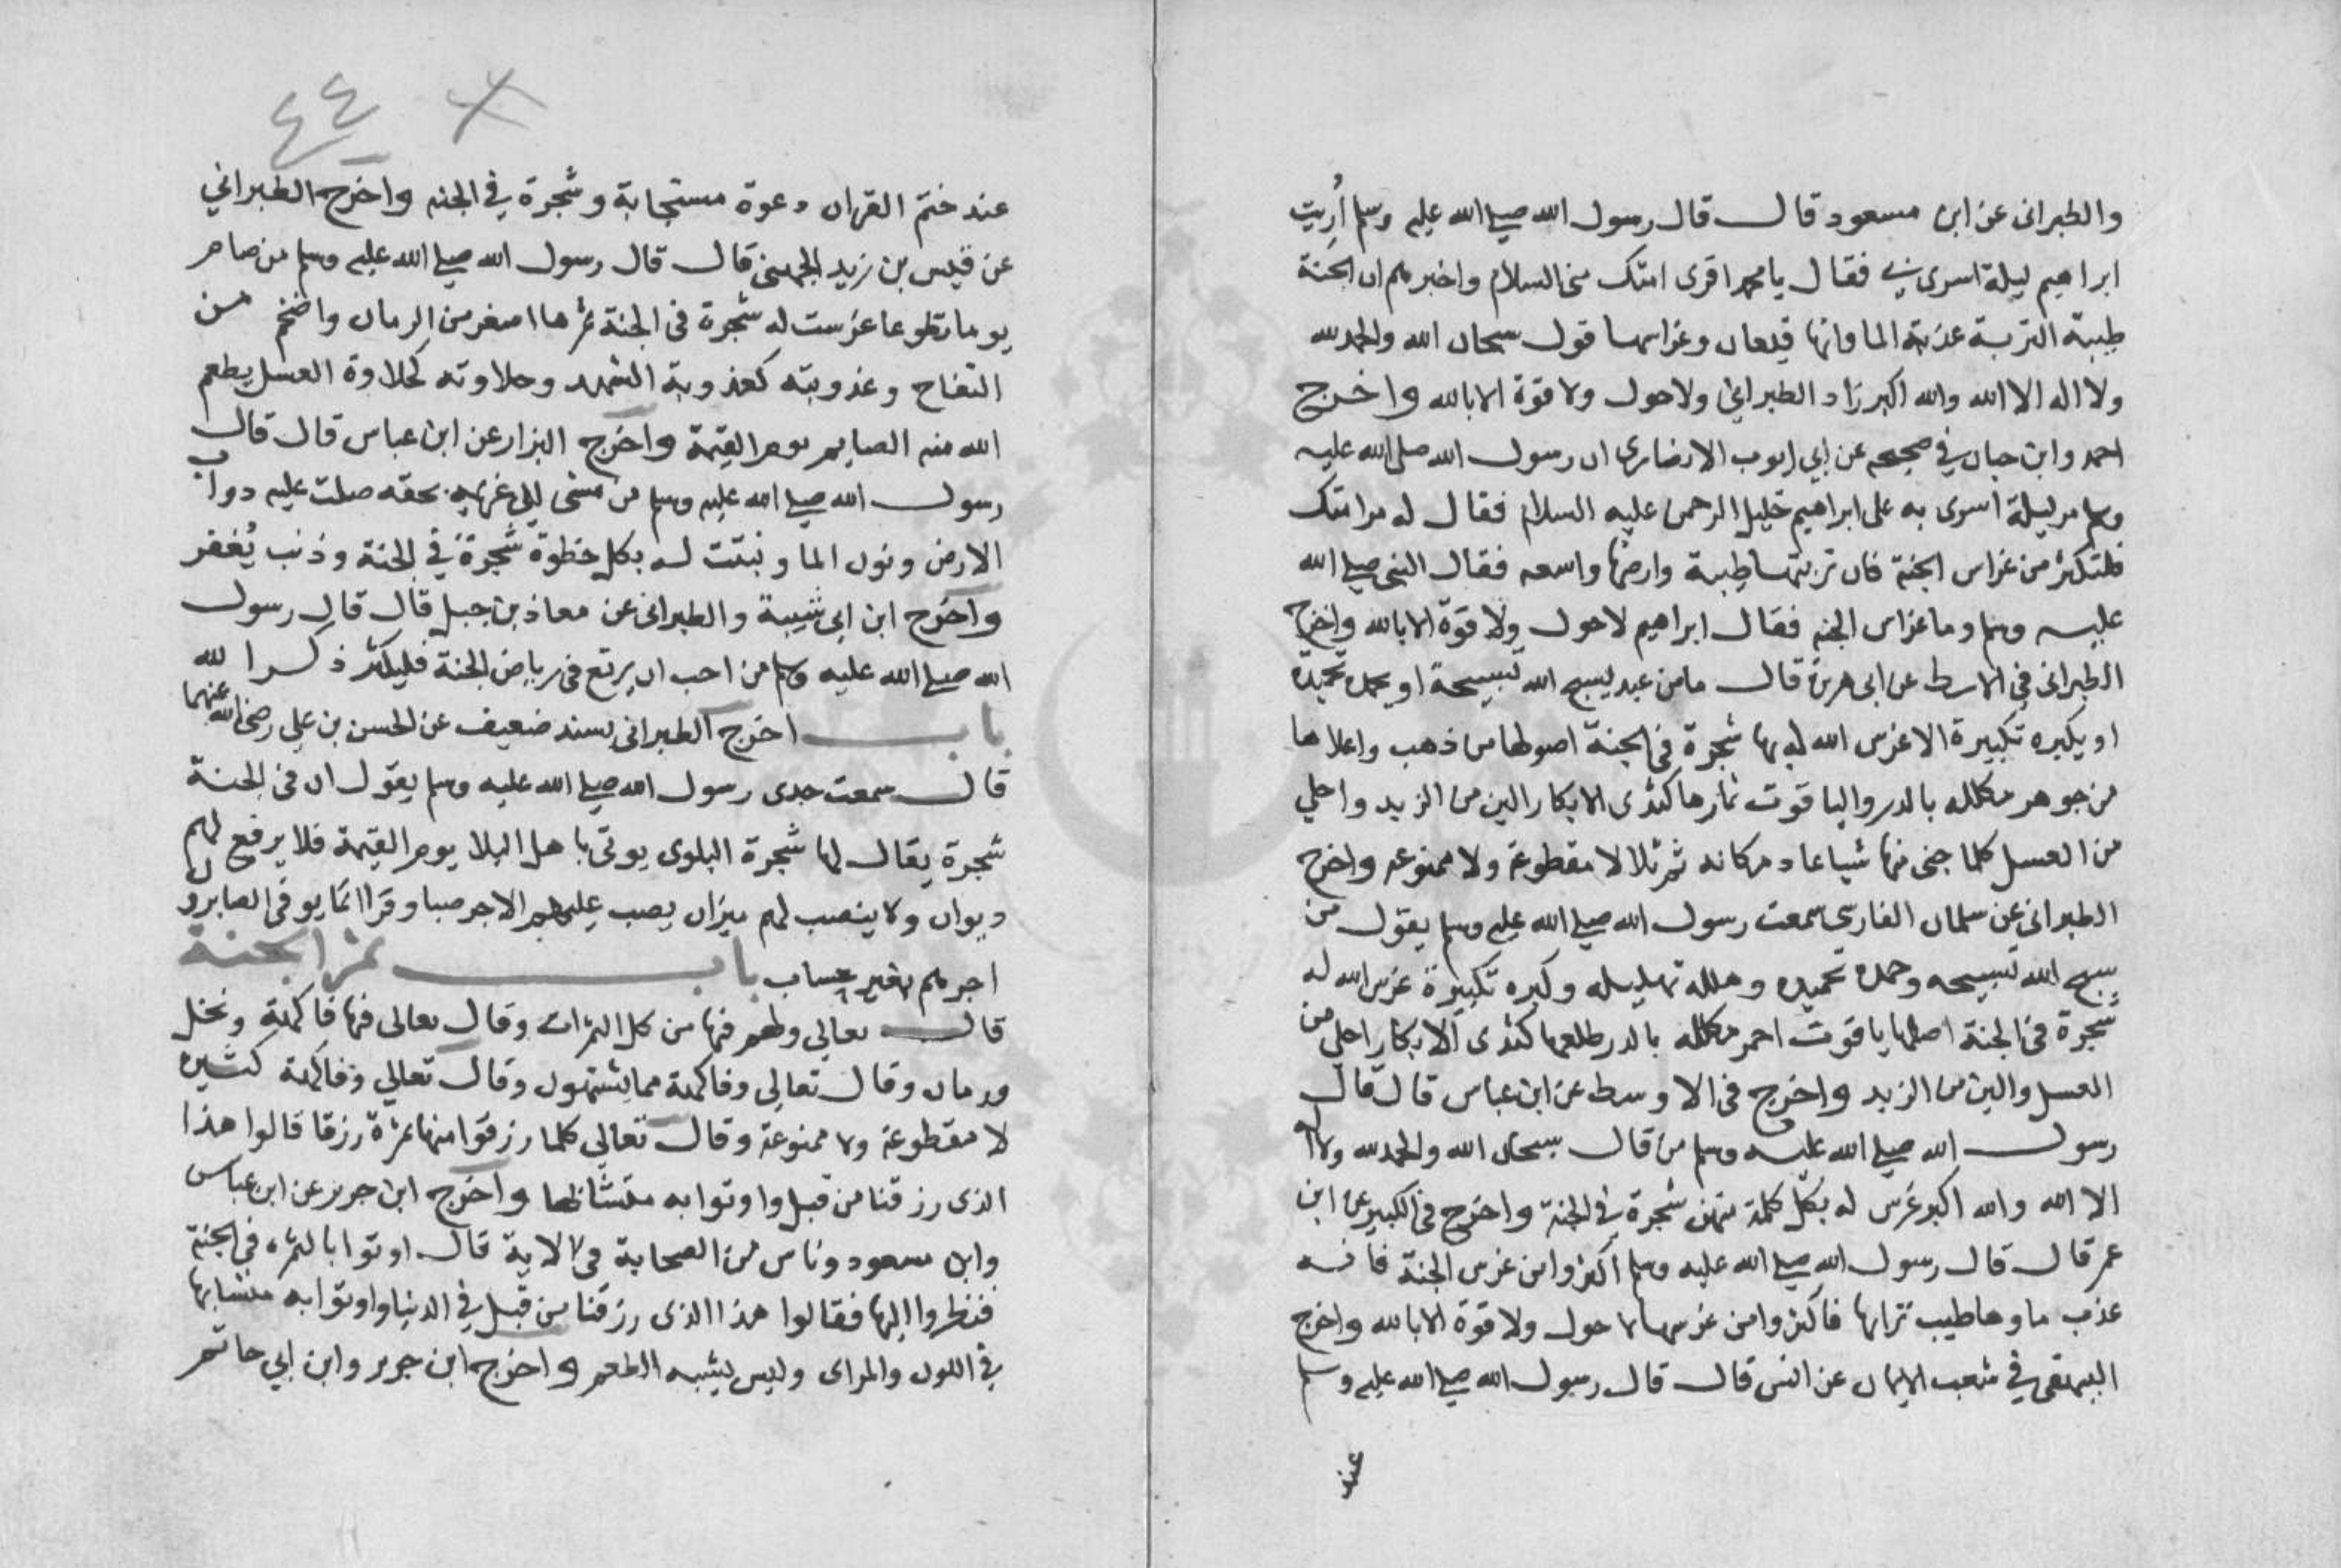 والطبرانى عن ابن مسعود قال قال رسول الله صلى الله عليه وسلم أُريت
ابراهيم ليلة اسرى بي فقال يا محمد اقرى امتك منى السلام واخبرهم ان الجنة
طيبة التربة عذبة الما وانها قيعان وغراسها قول سبحان الله والحمد لله
ولا اله الا الله والله اكبر زاد الطبراني ولا حول ولا قوة الا بالله واخرج
احمد وابن حبان في صحيحه عن ابي ايوب الانصارى ان رسول الله صلى الله عليه
وسلم مر ليلة اسرى به على ابراهيم خليل الرحمن عليه السلام فقال له مر امتك
فلتكثر من غراس الجنة فان تربتها طيبة وارضها واسعه فقال النبى صلى الله
عليه وسلم وما غراس الجنه فقال ابراهيم لا حول ولا قوة الا بالله واخرج
الطبرانى فى الاوسط عن ابى هريرة قال ما من عبد يسبح الله تسبيحة او يحمده تحميدة
او يكبره تكبيرة الا غرس الله له بها شجرة فى الجنة اصولها من ذهب واعلاها
من جوهر مكلله بالدر والياقوت ثمارها كثدى الابكار الين من الزبد واحلي
من العسل كلما جنى منها شيا عاد مكانه ثم تلا لا مقطوعة ولا ممنوعه واخرج
الطبرانى عن سلمان الفارسى سمعت رسول الله صلى الله عليه وسلم يقول من
سبح الله تسبيحه وحمده تحميده وهلله تهليله وكبره تكبيرة غرس الله له
شجرة فى الجنة اصلها ياقوت احمر مكلله بالدر طلعها كثدى الابكار احلي من
العسل والين من الزبد واخرج فى الاوسط عن ابن عباس قال قال
رسول الله صلى الله عليه وسلم من قال سبحان الله والحمد لله ولا اله
الا الله والله اكبر غرس له بكل كلمة منهن شجرة في الجنة واخرج فى الكبير عن ابن
عمر قال قال رسول الله صلى الله عليه وسلم اكثروا من غرس الجنة فانه
عذب ماوها طيب ترابها فاكثروا من غرسها لا حول ولا قوة الا بالله واخرج
البيهقى في شعب الايمان عن انس قال قال رسول الله صلى الله عليه وسلم
عند
٤٤
عند ختم القران دعوة مستجابة وشجرة في الجنه واخرج الطبراني
عن قيس بن زيد الجهنى قال قال رسول الله صلى الله عليه وسلم من صام
يوما تطوعا غرست له شجرة فى الجنة ثمرها اصغر من الرمان واضخم من
التفاح وعذوبته كعذوبة الشهد وحلاوته كحلاوة العسل يطعم
الله منه الصايم يوم القيمة واخرج البزار عن ابن عباس قال قال
رسول الله صلى الله عليه وسلم من مشى الى غريمه بحقه صلت عليه دواب
الارض ونون الما ونبتت له بكل خطوة شجرة في الجنة وذنب يُغفر
واخرج ابن ابى شيبة والطبرانى عن معاذ بن جبل قال قال رسول
الله صلى الله عليه وسلم من احب ان يرتع فى رياض الجنة فليكثر ذكر الله
باب اخرج الطبرانى بسند ضعيف عن الحسن بن علي رضى الله عنهما
قال سمعت جدى رسول الله صلى الله عليه وسلم يقول ان فى الجنة
شجرة يقال لها شجرة البلوى يوتى باهل البلا يوم القيمة فلا يرفع لهم
ديوان ولا ينصب لهم ميزان يصب عليهم الاجر صبا وقرا انما يوفى الصابرون
اجرهم بغير حساب باب ثمر الجنة
قال تعالى ولهم فيها من كل الثمرات وقال تعالى فيها فاكهة ونخل
ورمان وقال تعالى وفاكهة مما يشتهون وقال تعالي وفاكهة كثيره
لا مقطوعة ولا ممنوعة وقال تعالي كلما رزقوا منها ثمرة رزقا قالوا هذا
الذى رزقنا من قبل واوتوا به متشابها واخرج ابن جرير عن ابن عباس
وابن مسعود وناس من الصحابة فى الاية قال اوتوا بالثمره فى الجنة
فنظروا اليها فقالوا هذا الذى رزقنا من قبل في الدنيا واوتوا به متشابها
في اللون والمراى وليس يشبه الطعم واخرج ابن جرير وابن ابي حاتم